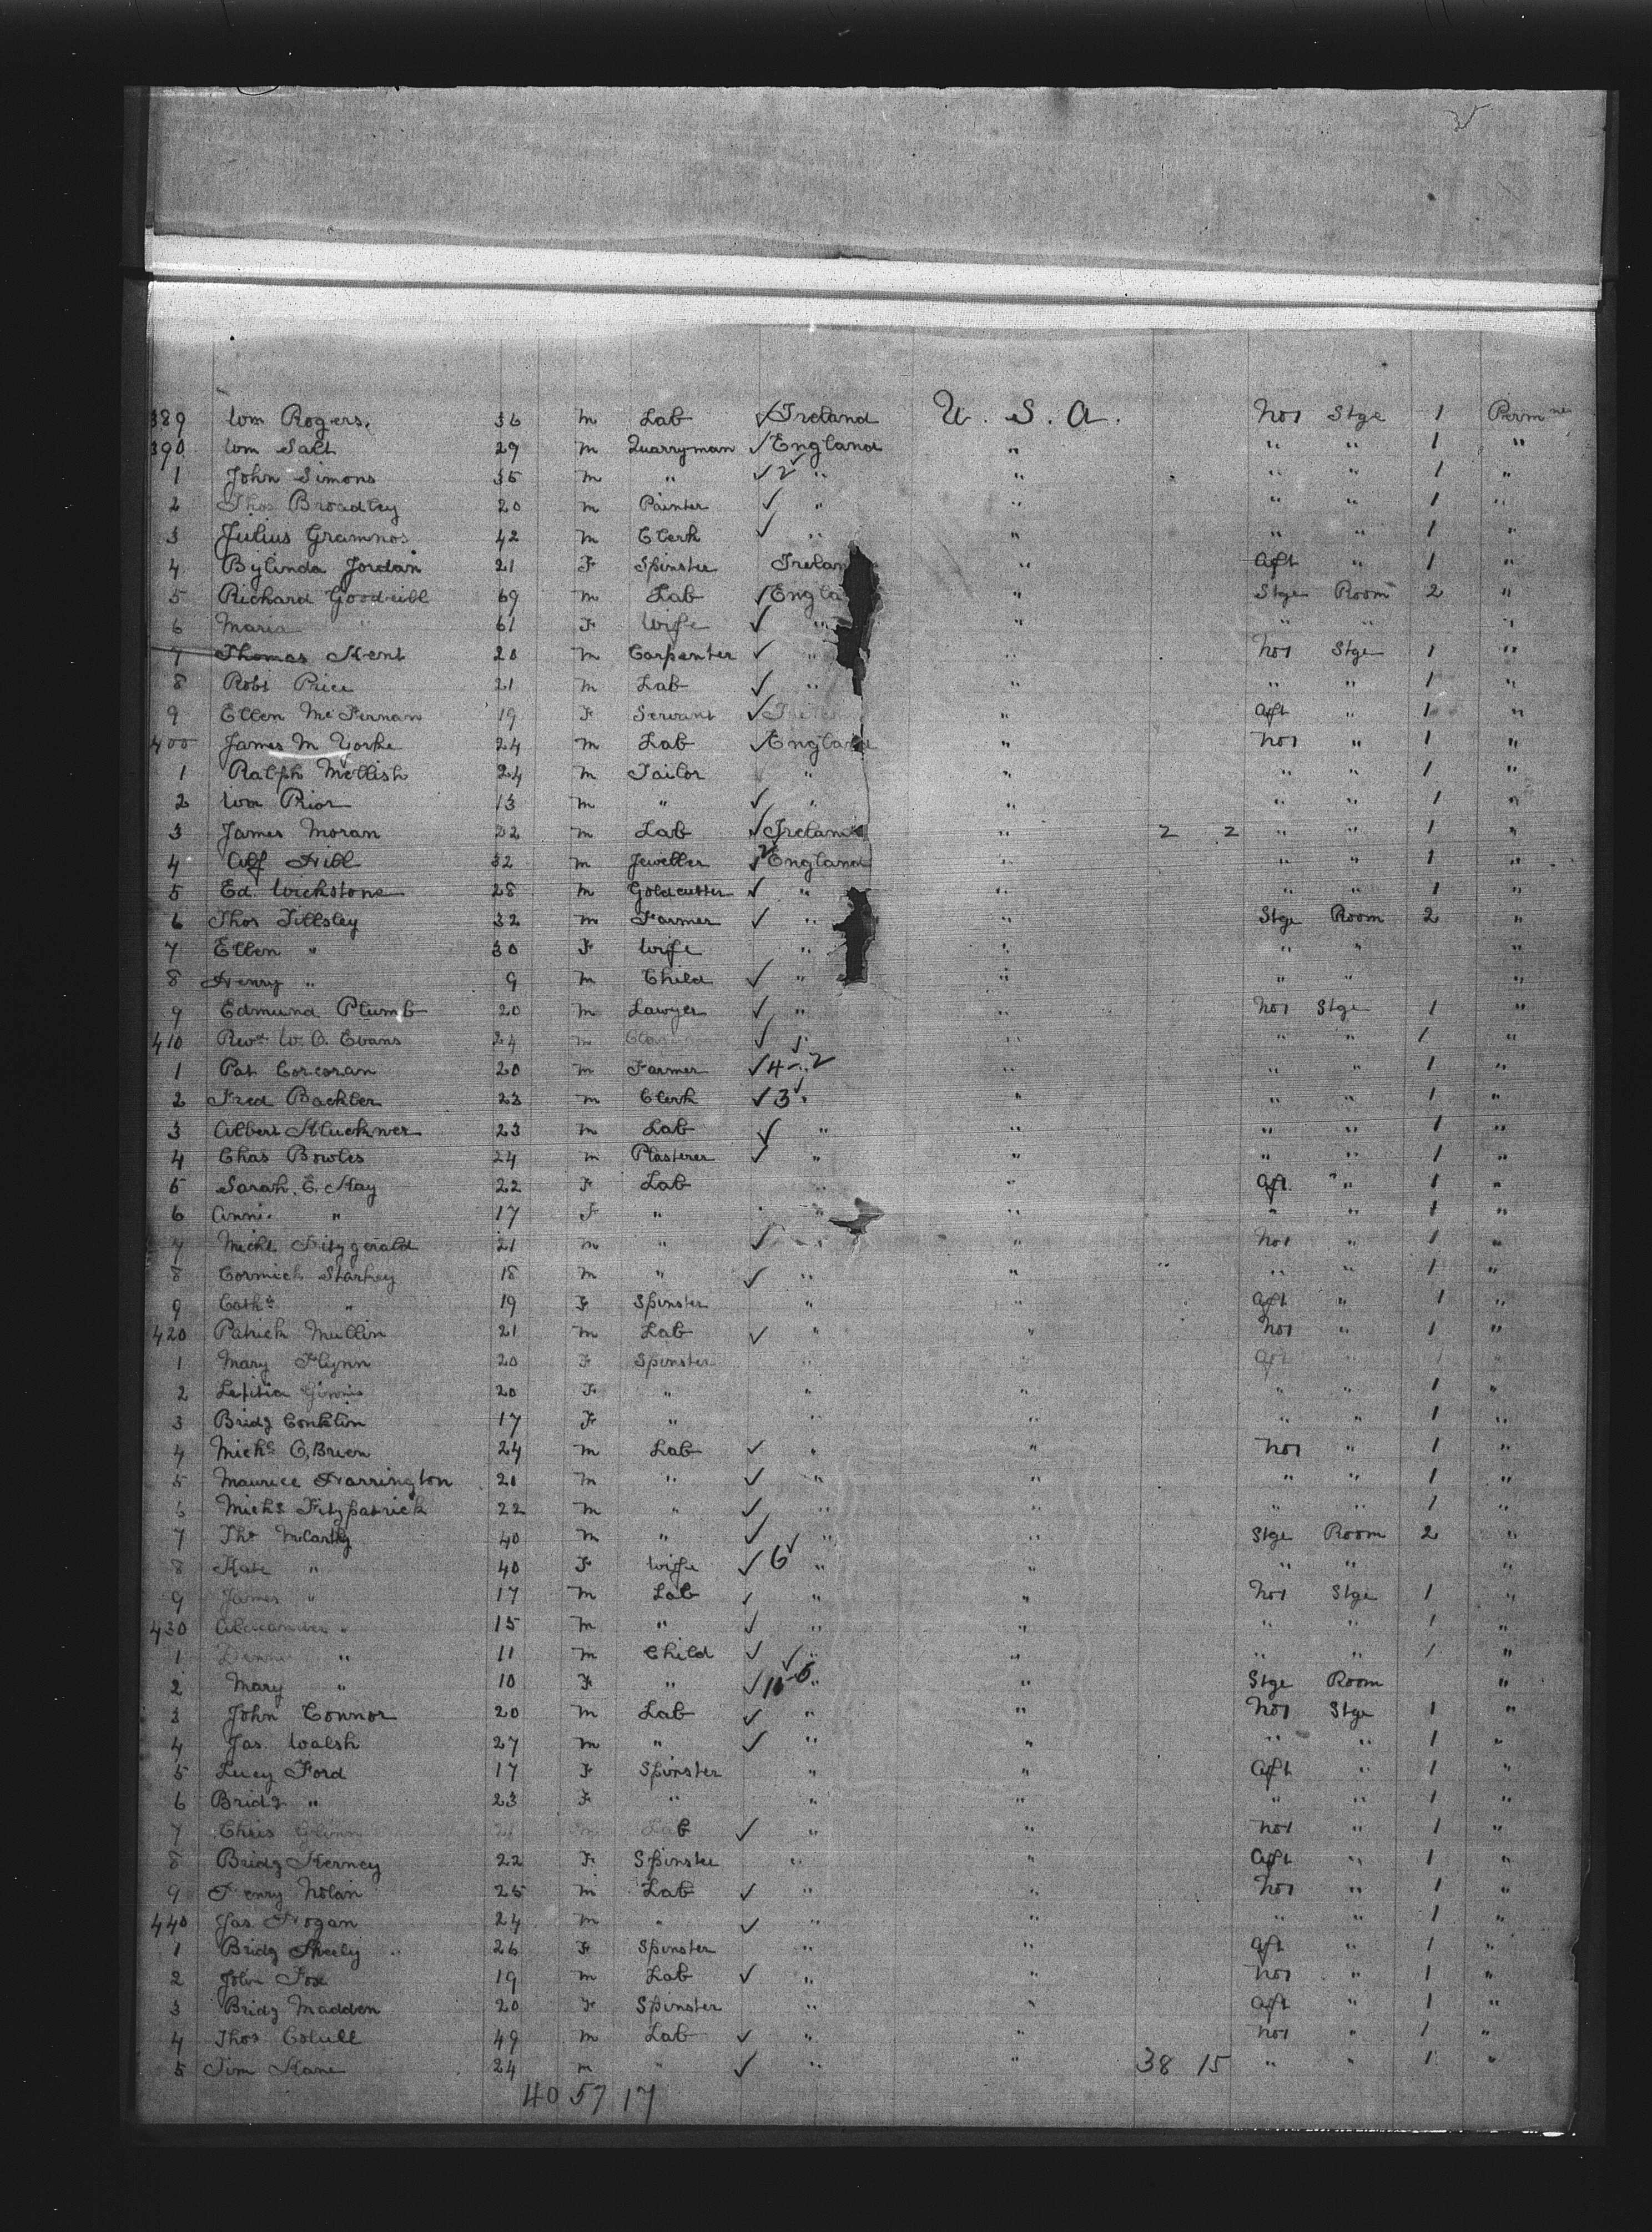 389 Wm Rogers. 36 m Lab ✓ Ireland U. S. A. No1 Stge 1 Perm
390 Wm Salt 29 m Quarryman ✓ England " " " 1 "
1 John Simons 35 m " ✓ 2 " " " " 1 "
2 Thos Broadley 20 m Painter ✓ " " " " 1 "
3 Julius 42 m Clerk ✓ " " " " 1 "
4 Bylinda Jordain 21 F Spinster Irelan " Aft " 1 "
5 Richard 69 m Lab ✓ Engla " Stge Room 2 "
6 Maria " 61 F Wife ✓ " " " " "
7 Thomas Kent 20 m Carpenter ✓ " " No1 Stge 1 "
8 Robt Price 21 m Lab ✓ " " " " 1 "
9 Ellen McFernan 19 F Servant ✓ " Aft " 1 "
400 James M Yorke 24 m Lab ✓ England " No1 " 1 "
1 Ralph Mellish 24 m Tailor " " " " 1 "
2 Wm Prior 13 m " ✓ " " " " 1 "
3 James Moran 22 m Lab ✓ Ireland " 2 2 " " 1 "
4 Alf 32 m Jeweller ✓ England " " " 1 "
5 Ed. Wickstone 28 m Goldcutter ✓ " " " " 1 "
6 Thos Tillsley 32 m Farmer ✓ " " Stge Room 2 "
7 Ellen " 30 F Wife " " " " "
8 Henry " 9 m Child ✓ " " " " "
9 Edmund Plumb 20 m Lawyer ✓ " " No1 Stge 1 "
410 Revd W. O. Evans 24 m ✓ " " " 1 "
1 Pat Corcoran 20 m Farmer ✓ 4 - 2 " " 1 "
2 Fred Bachler 23 m Clerk ✓ 3 " " " 1 "
3 Albert Kluckner 23 m Lab ✓ " " " " 1 "
4 Chas Bowles 24 m Plasterer ✓ " " " " 1 "
5 Sarah. E. Kay 22 F Lab " " Aft " 1 "
6 Annie " 17 F " " " " " 1 "
7 Michl Fitzgerald 21 m " ✓ " " No1 " 1 "
8 Cormick Starkey 18 m " ✓ " " " " 1 "
9 Cathe " 19 F Spinster " " Aft " 1 "
420 Patrick Mullin 21 m Lab ✓ " " No1 " 1 "
1 Mary Flynn 20 F Spinster " " Aft " 1 "
2 Letitia 20 F " " " " " 1 "
3 Bridg Conklin 17 F " " " " " 1 "
4 Michl O,Brien 24 m Lab ✓ " " No1 " 1 "
5 Maurice Harrington 20 m " ✓ " " " " 1 "
6 Michl Fitzpatrick 22 m " ✓ " " " " 1 "
7 Thos McCarthy 40 m " ✓ " " Stge Room 2 "
8 Kate " 40 F Wife ✓ 6 " " " " "
9 James " 17 m Lab ✓ " " No1 Stge 1 "
430 Alexander " 15 m " ✓ " " " " 1 "
1 " 11 m Child ✓ " " " " 1 "
2 Mary " 10 F " ✓ " " Stge Room "
3 John Connor 20 m Lab ✓ " " No1 Stge 1 "
4 Jas. Walsh 27 m " ✓ " " " " 1 "
5 Lucy Ford 17 F Spinster " " Aft " 1 "
6 Bridg " 23 F " " " " " 1 "
7 Chris Glinn 21 m Lab ✓ " " No1 " 1 "
8 Bridg Kerney 22 F Spinster " " Aft " 1 "
9 Henry Nolan 25 m Lab ✓ " " No1 " 1 "
440 Jas Hogan 24 m " ✓ " " " " 1 "
1 Bridg 26 F Spinster " " Aft " 1 "
2 John Fox 19 m Lab ✓ " " No1 " 1 "
3 Bridg Madden 20 F Spinster " " Aft " 1 "
4 Thos 49 m Lab ✓ " " No1 " 1 "
5 Tim Kane 24 m " ✓ " " 38 15 " " 1 "
40 57 17